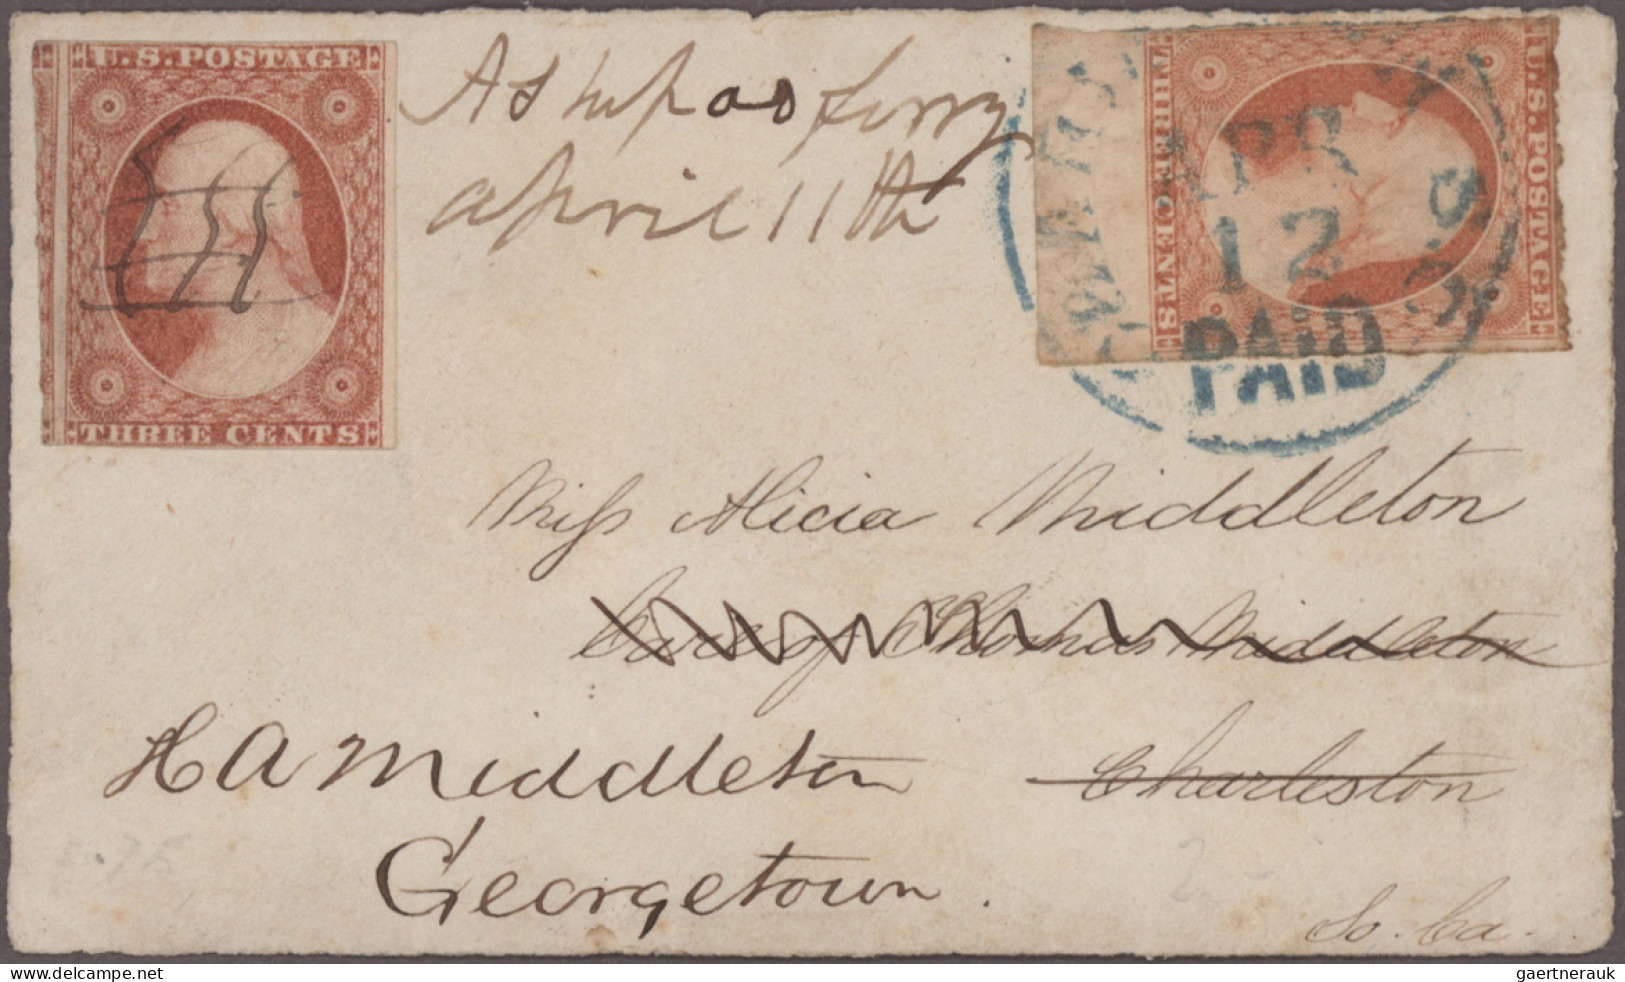 U.S.POSTAGE
THREE CENTS
Ashepoo ferry
april 11th
U.S.POSTAGE
THREE CENTS
CHARLES
S.C.
APR
12
PAID
Miss Alicia Middleton
Care of Thomas Middleton
Charleston
HA Middleton
Georgetown.
So. Ca.
gaertnerauk
www.delcampe.net